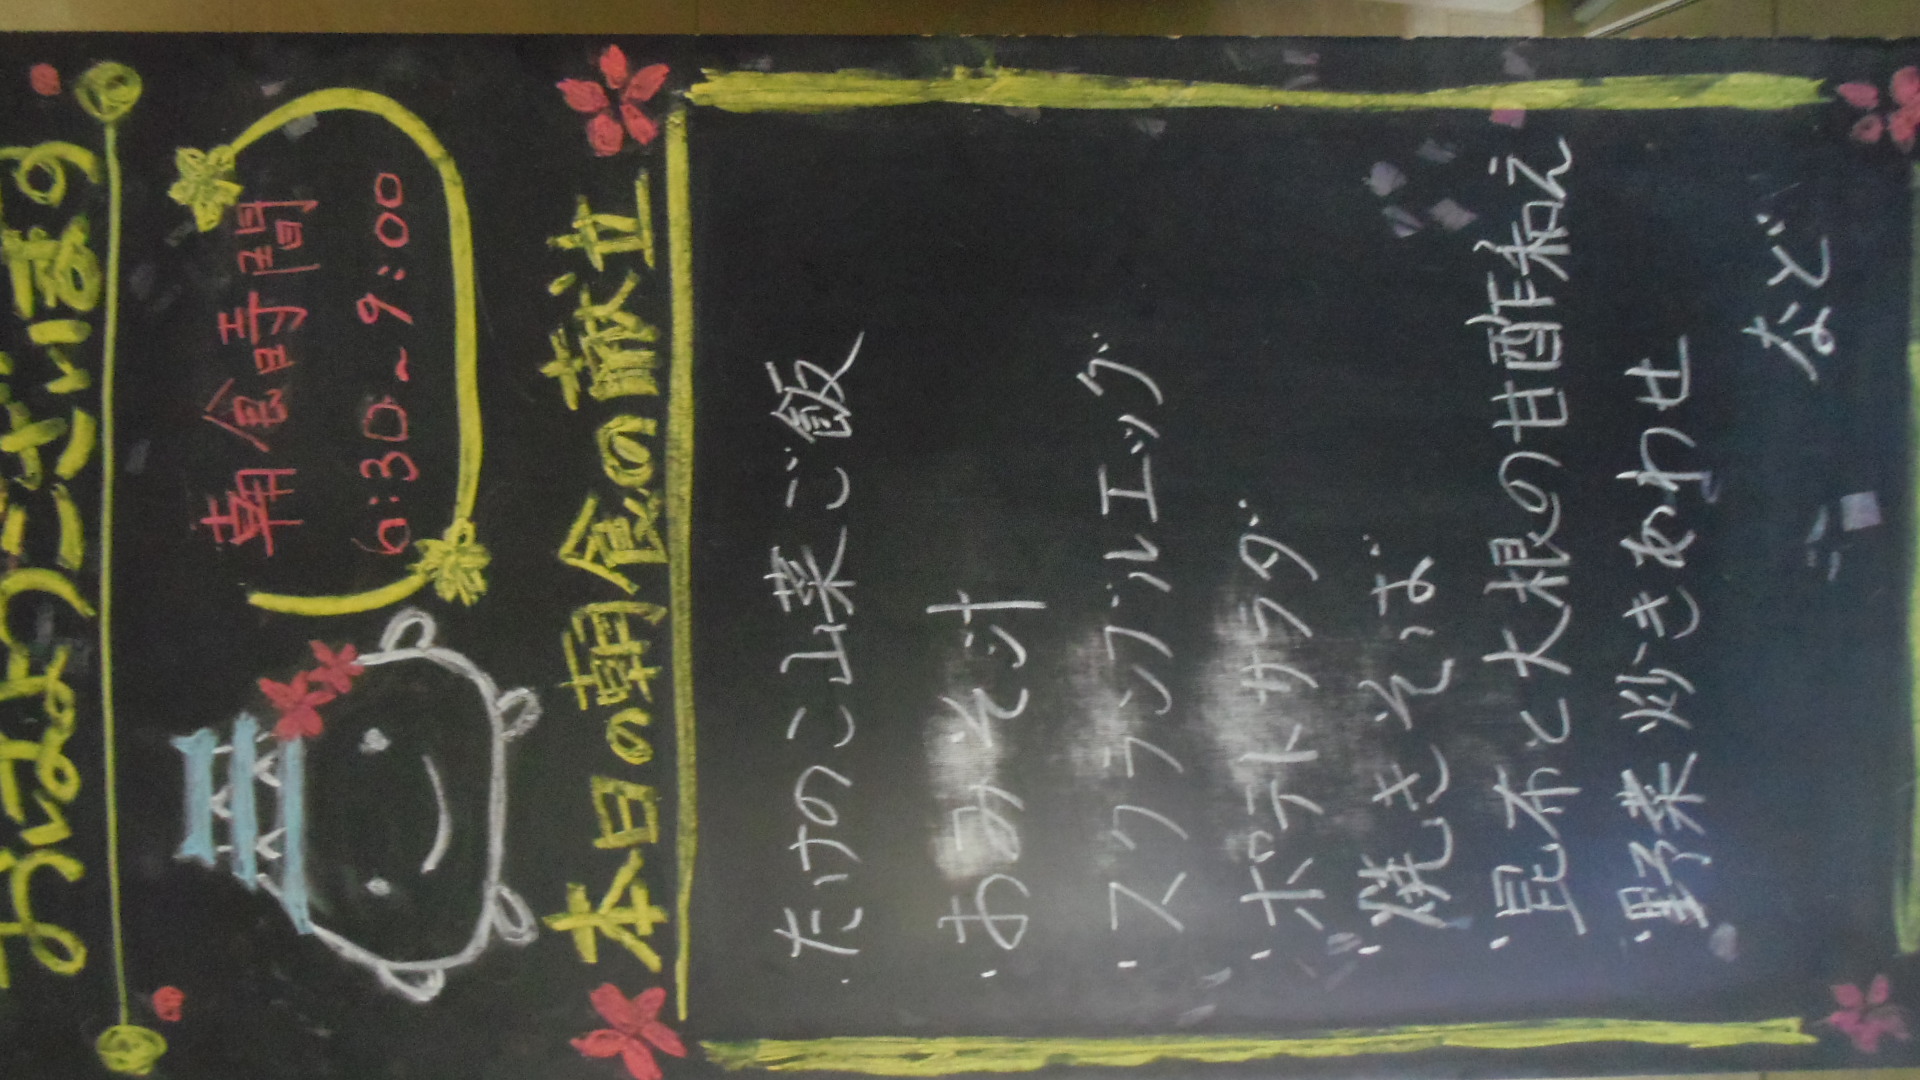 おはようございます
朝食時間
6:30~9:00
本日の朝食の献立
・たけのこ山菜ご飯
・おみそ汁
・スクランブルエッグ
・ポテトサラダ
・焼きそば
・昆布と大根の甘酢和え
・野菜炒きあわせ
など